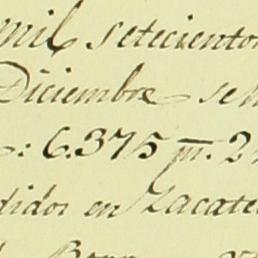 mil setecientos
Diciembre se
: 6.375 p. 2
didos en Zacate